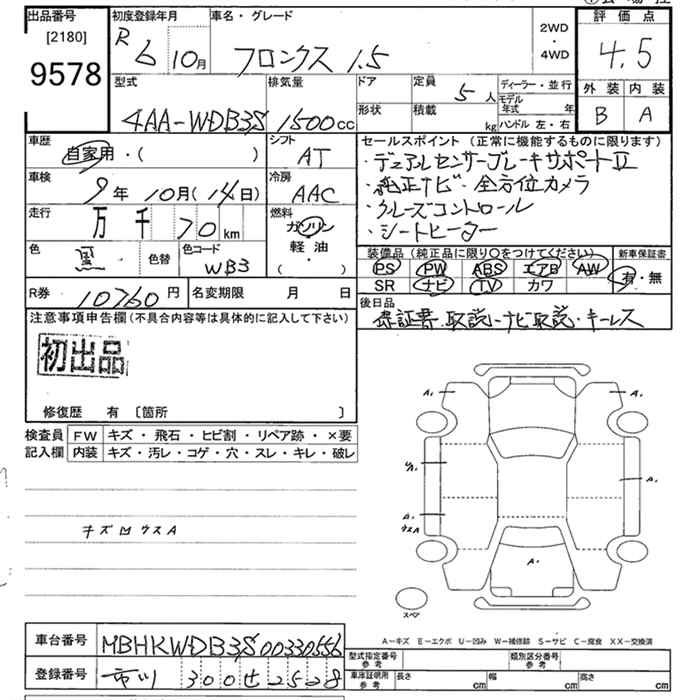 出品番号
[2180]
9578
初度登録年月
R 6 10月
車名・グレード
フロンクス 1.5
2WD
・
4WD
評価点
4.5
外装 内装
B A
型式
4AA-WDB3S
排気量
1500cc
ドア
形状
定員
5人
積載
kg
ディーラー・並行
モデル年式 年
ハンドル 左・右
車歴
自家用・( )
シフト
AT
車検
9年 10月(14日)
冷房
AAC
走行
万 千 70km
燃料
ガソリン
軽・油
( )
色
黒
色替
色コード
WB3
R券 10760円
名変期限 月 日
セールスポイント (正常に機能するものに限ります)
・デュアルセンサーブレーキサポートⅡ
・純正ナビ・全方位カメラ
・クルーズコントロール
・シートヒーター
装備品(純正品に限り○をつけてください)
PS PW ABS エアB AW
SR ナビ TV カワ
新車保証書
有・無
後日品
保証書.取説.ナビ取説・キーレス
注意事項申告欄(不具合内容等は具体的に記入して下さい)
初出品
修復歴 有〔箇所 〕
検査員
記入欄
FW キズ・飛石・ヒビ割・リペア跡・×要
内装 キズ・汚レ・コゲ・穴・スレ・キレ・破レ
キズ凹ウスA
A₁ A₁
A₁
A₁
ウスA
A₁
スペア
A-キズ E-エクボ U-凹み W-補修跡 S-サビ C-腐食 XX-交換済
車台番号 MBHKWDB3S00330556
登録番号 市川 300せ2528
型式指定番号
参考
類別区分番号
参考
車庫証明用
参考
長さ cm 幅 cm 高さ cm